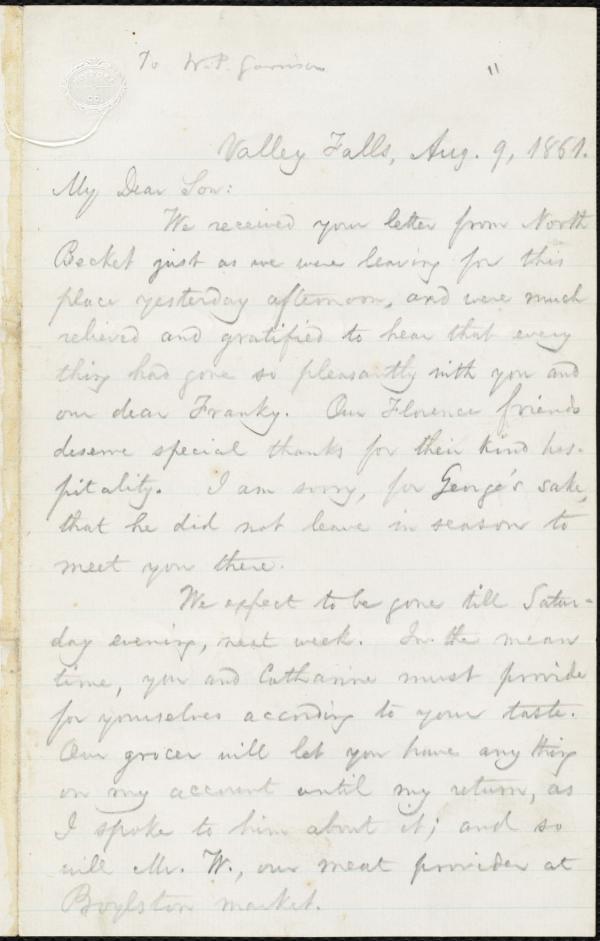 To W. P. Garrison
"
Valley Falls, Aug. 9, 1861.
My Dear Son:
We received your letter from North
Becket just as we were leaving for this
place yesterday afternoon, and were much
relieved and gratified to hear that every
thing had gone so pleasantly with you and
our dear Franky. Our Florence friends
deserve special thanks for their kind hos-
pitality. I am sorry, for George's sake,
that he did not leave in season to
meet you there.
We expect to be gone till Satur-
day evening, next week. In the mean
time, you and Catharine must provide
for yourselves according to your taste.
Our grocer will let you have any thing
on my account until my return, as
I spoke to him about it; and so
will Mr. W., our meat provider at
Boylston market.